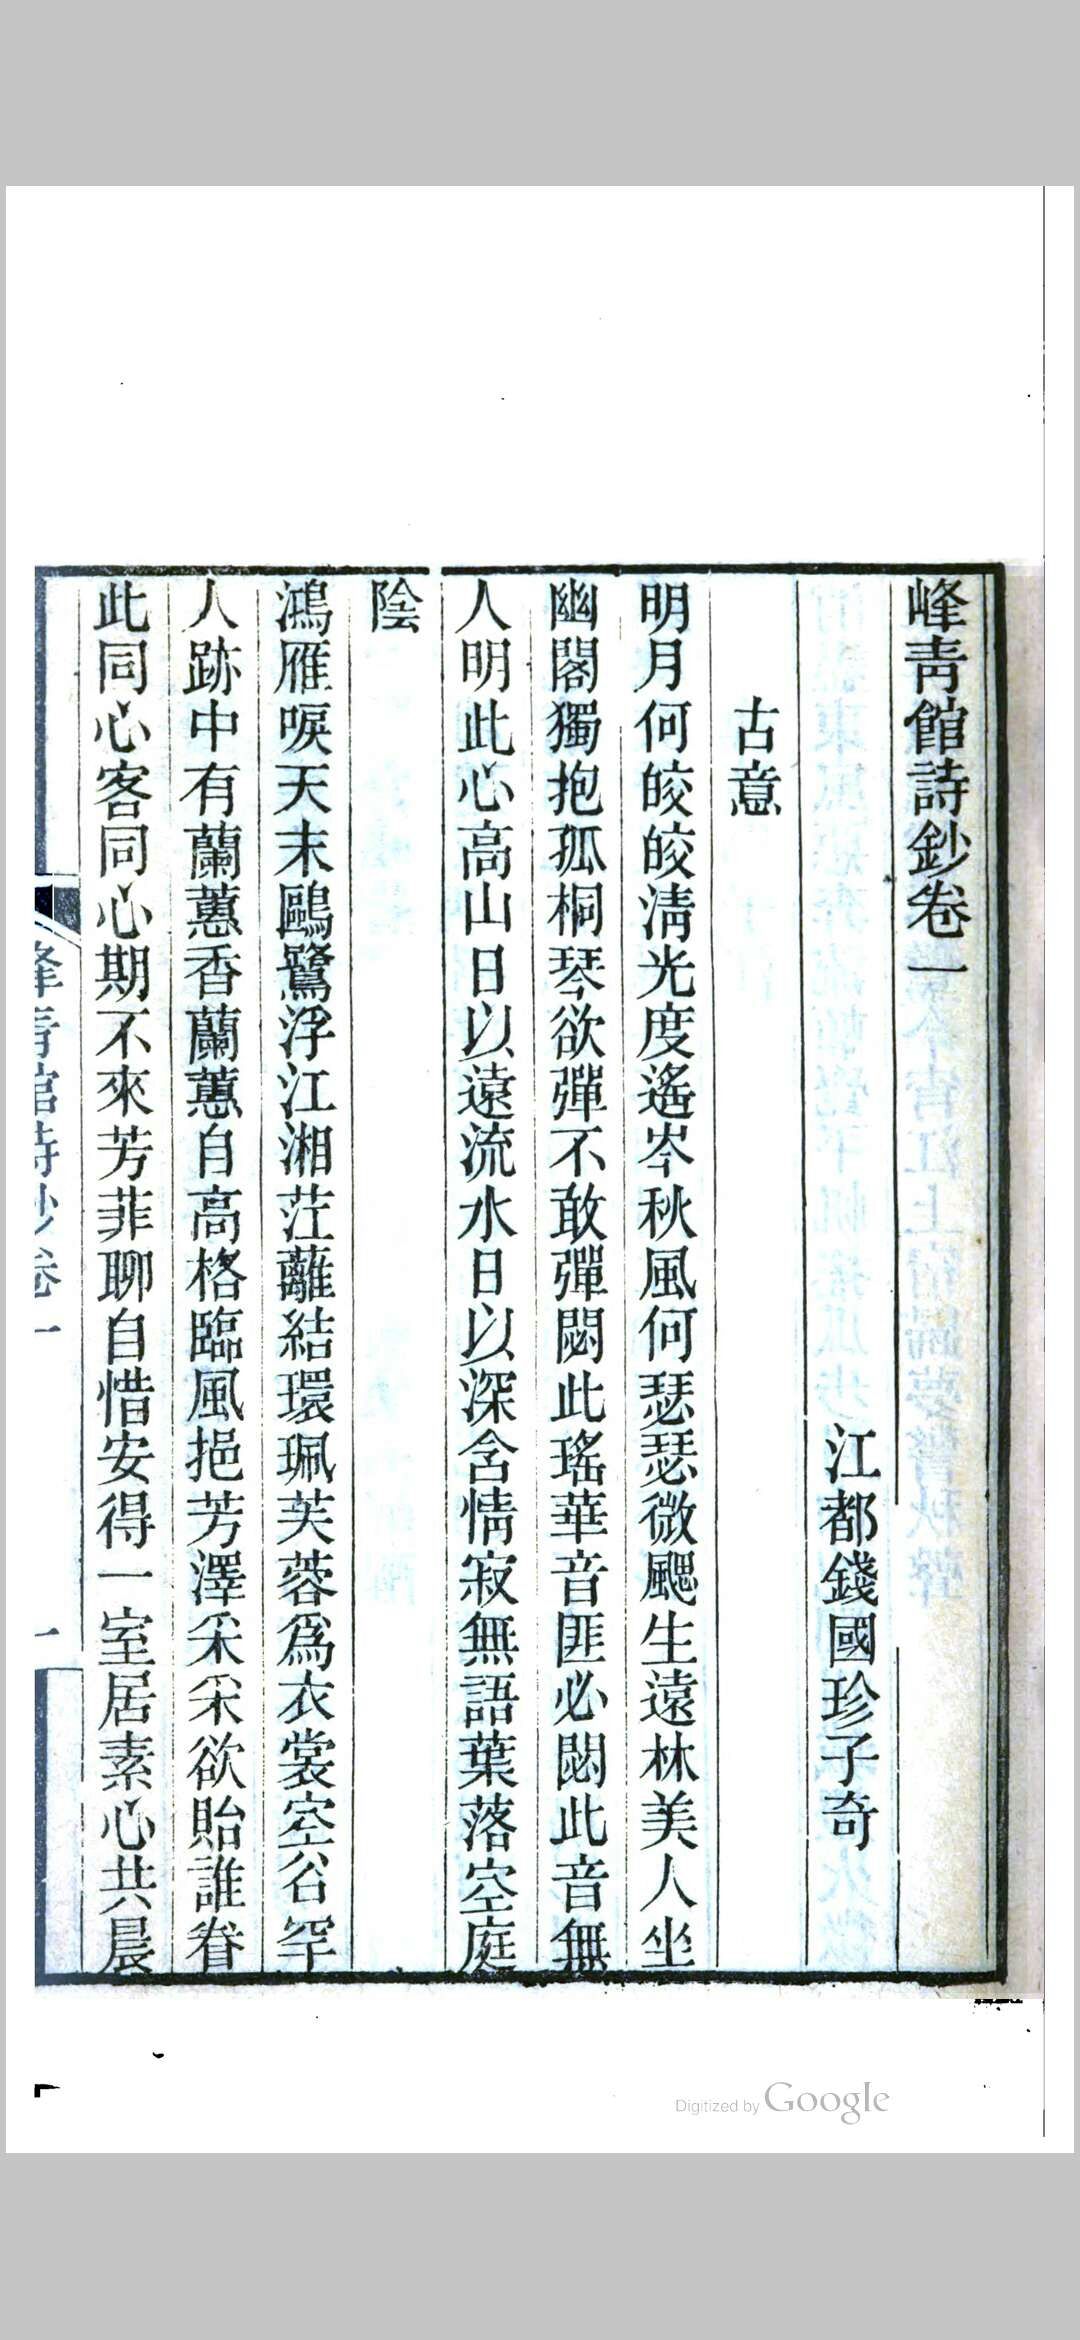 峰青館詩鈔卷一
江都錢國珍子奇
古意
明月何皎皎清光度遙岑秋風何瑟瑟微颸生遠林美人坐
幽閣獨抱孤桐琴欲彈不敢彈閟此瑤華音匪必閟此音無
人明此心高山日以遠流水日以深含情寂無語葉落空庭
陰
鴻雁唳天末鷗鷺浮江湘茳蘺結環珮芙蓉爲衣裳空谷罕
人跡中有蘭蕙香蘭蕙自高格臨風挹芳澤采采欲貽誰眷
此同心客同心期不來芳菲聊自惜安得一室居素心共晨
峰青館詩鈔卷一
一
Digitized by Google